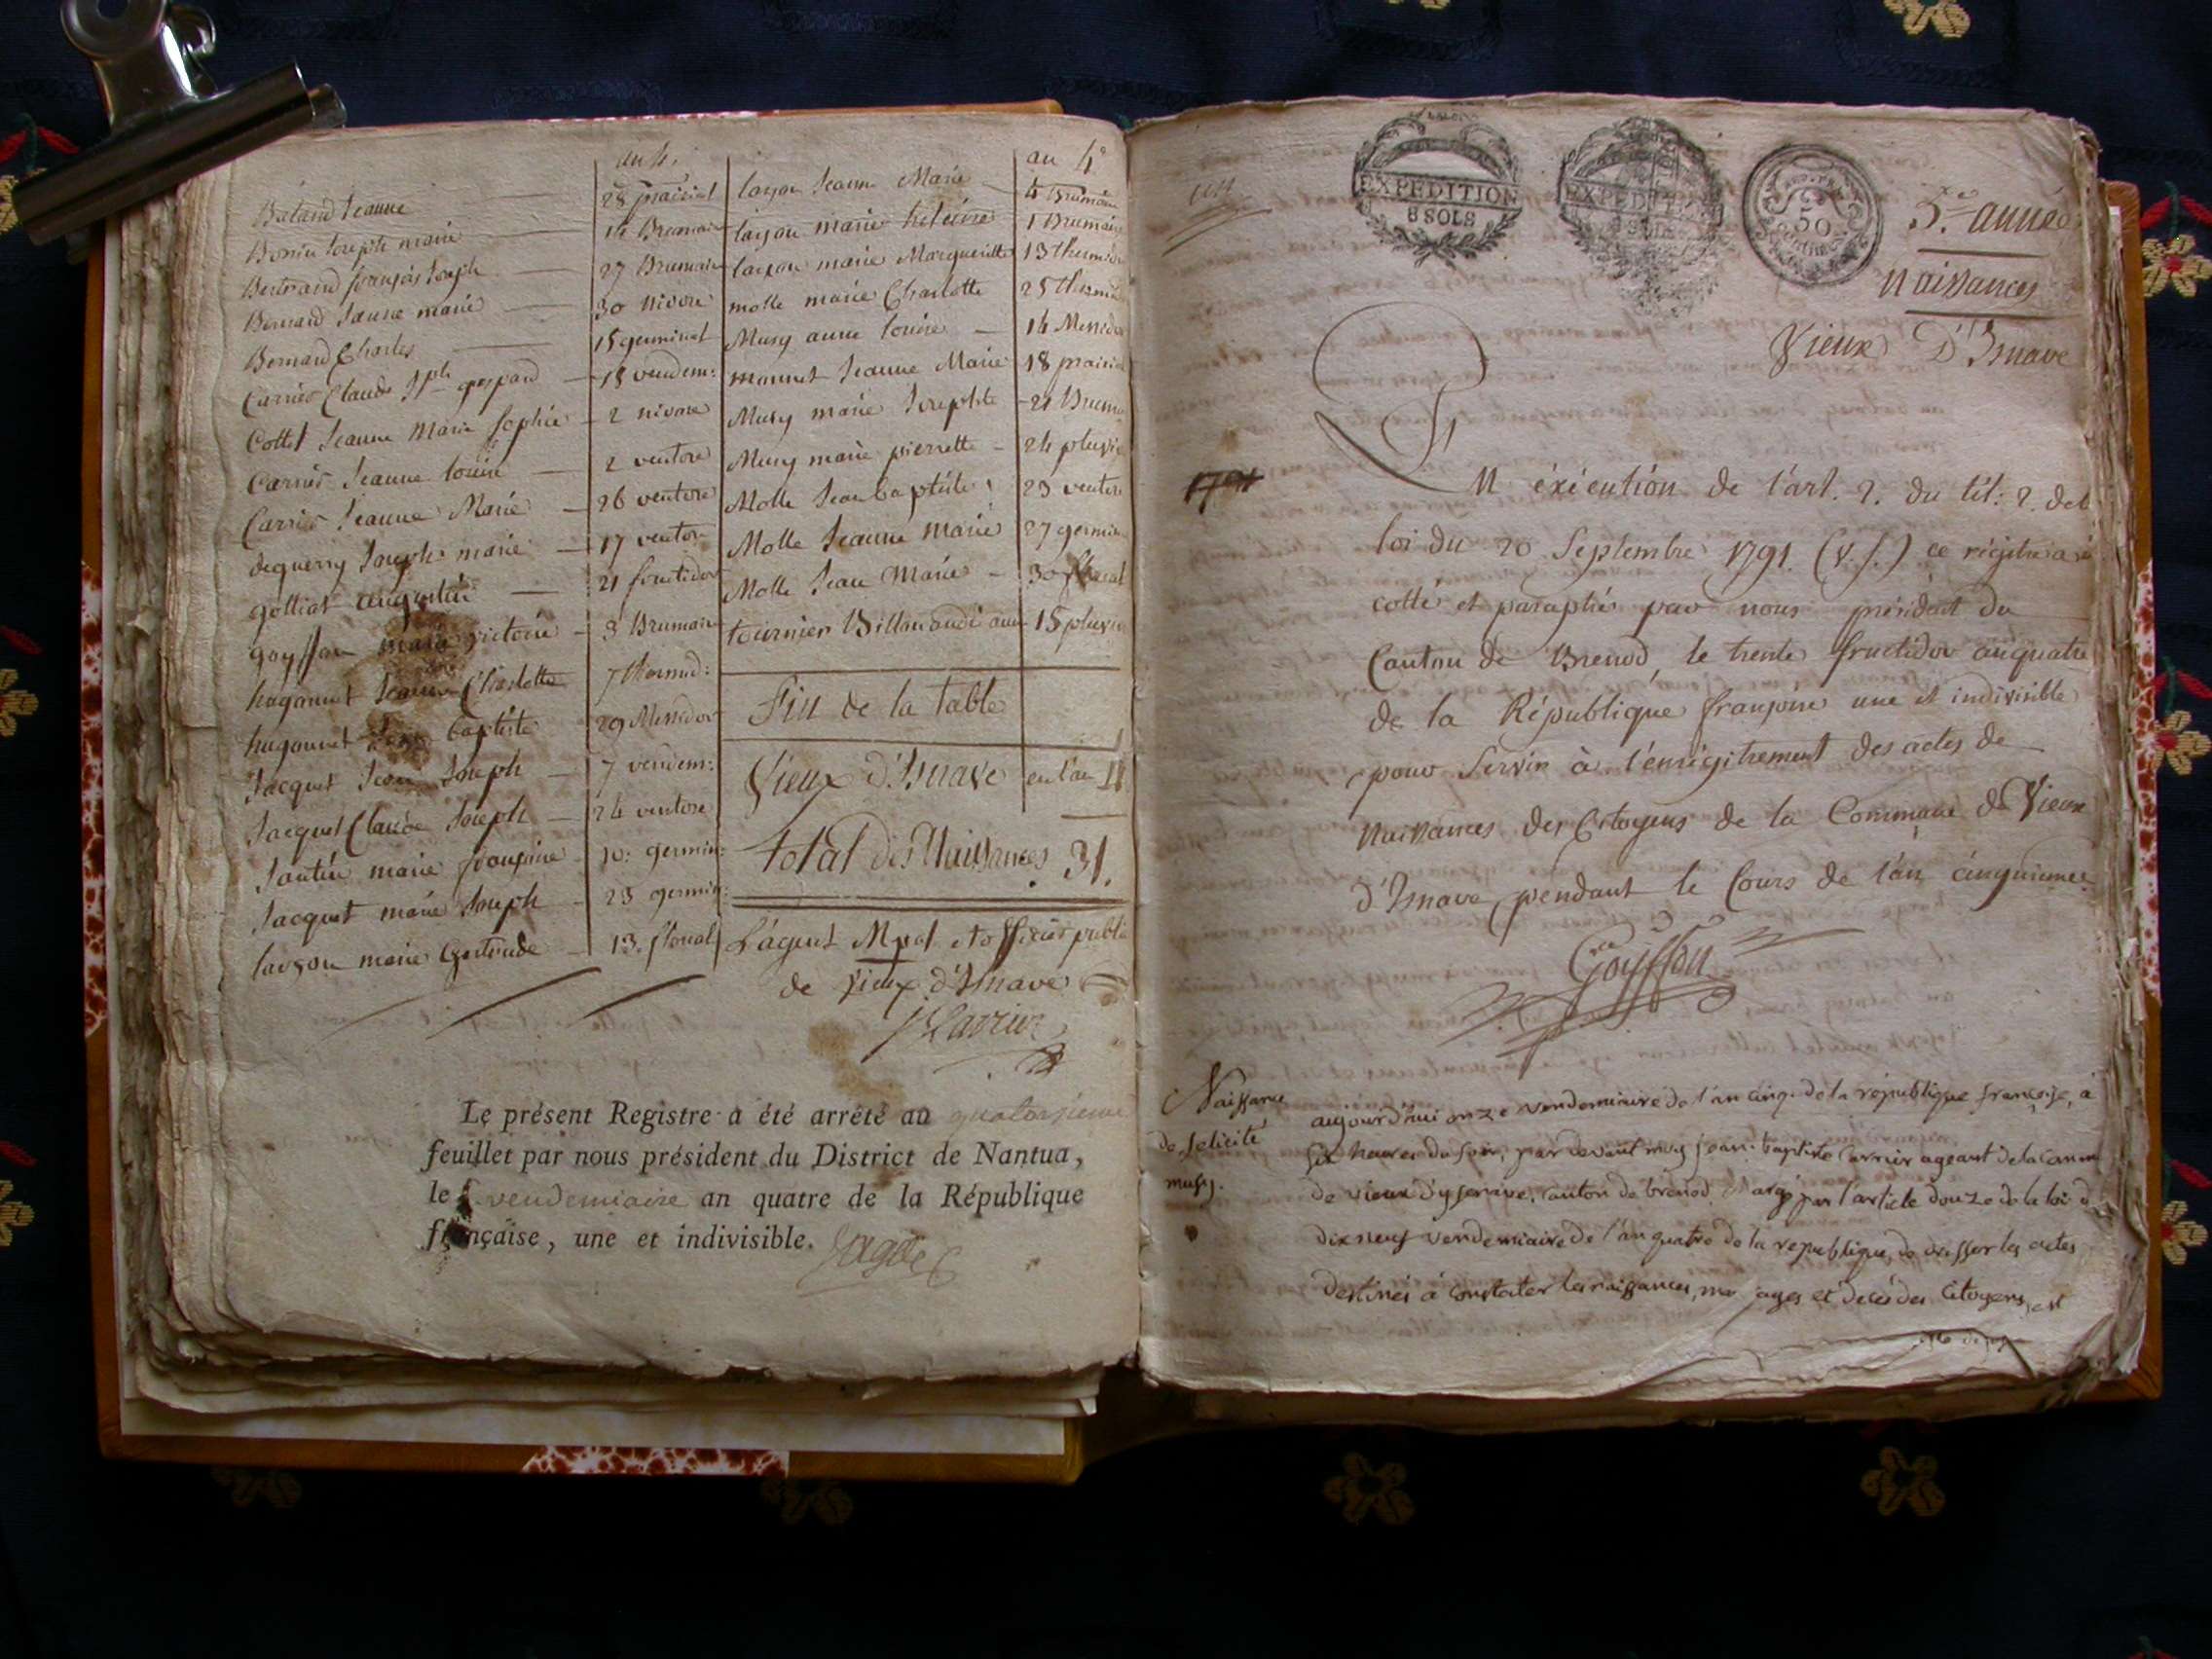 an 4.
Balland Jeanne — 28 prairial
Bonin Joseph marie — 14 Brumaire
Bertrand françois Joseph — 27 Brumaire
Bernard Jeanne marie — 30 nivose
Bernard Charles — 15 germinal
Carrier Claude Jph gaspard — 18 vendem:
Collet Jeanne Marie Sophie — 2 nivose
Carrier Jeanne louise — 2 ventose
Carrier Jeanne Marie — 26 ventose
deguerry Joseph marie — 17 ventose
golliat augustin — 21 fructidor
goyffon marie victoire — 3 Brumaire
hugonnet Jeanne Charlotte 7 thermid:
hugonnet Jean Baptiste 29 Messidor
Jacquet Jean Joseph — 7 vendem:
Jacquet Claude Joseph — 24 ventose
Jantin marie françoise 10: germin:
Jacquet marie Joseph — 23 germin:
laison marie Gertrude — 13. floreal
an 4e
Jeanne Marie — 4 Brumaire
marie heleine 1 Brumaire
marie Margueritte 13 thermidor
molle marie Charlotte 25 therm
Musy anne louise — 14 Messidor
monnet Jeanne Marie 18 prairial
Musy marie Josephte — 21 Brum
Musy marie pierrette — 24 pluvio
Molle Jean baptiste 23 ventose
Molle Jeanne marie 27 germin
Molle Jean Marie — 30 floreal
tournier Billon 15 pluvio
Fin de la table
Vieux d'Isnave en l'an 4
total des Naissances. 31.
L'agent Mpal et officier public
de Vieux d'Isnave
Carrier
Le présent Registre a été arrêté au quatorzieme
feuillet par nous président du District de Nantua,
le vendemiaire an quatre de la République
française, une et indivisible.
EXPEDITION
8 SOLS
EXPEDITION
8 SOLS
50
centimes
5.e année
Naissances
Vieux D'Isnave
1791
En exécution de l'art. 2. du tit: 2. de la
loi du 20 Septembre 1791. (v.s.) ce régitre a été
cotté et paraphé par nous président du
Canton de Brenod, le trente fructidor an quatre
de la République françoise une et indivisible
pour servir à l'enregitrement des actes de
Naissances des Citoyens de la Commune de Vieux
d'Isnave, pendant le Cours de l'an cinquieme.
Goyffon
Naissance
de felicité
musy.
aujourd'hui onze vendemiaire de l'an cinq de la république françoise, à
six heures du soir, par devant moy jean baptiste carrier agent de la comm
de vieux d'ysenave, canton de brenod chargé par l'article douze de la loi du
dix neuf vendemiaire de l'an quatre de la republique, de dresser les actes
destinés à constater les naissances, mariages et décès des citoyens, est